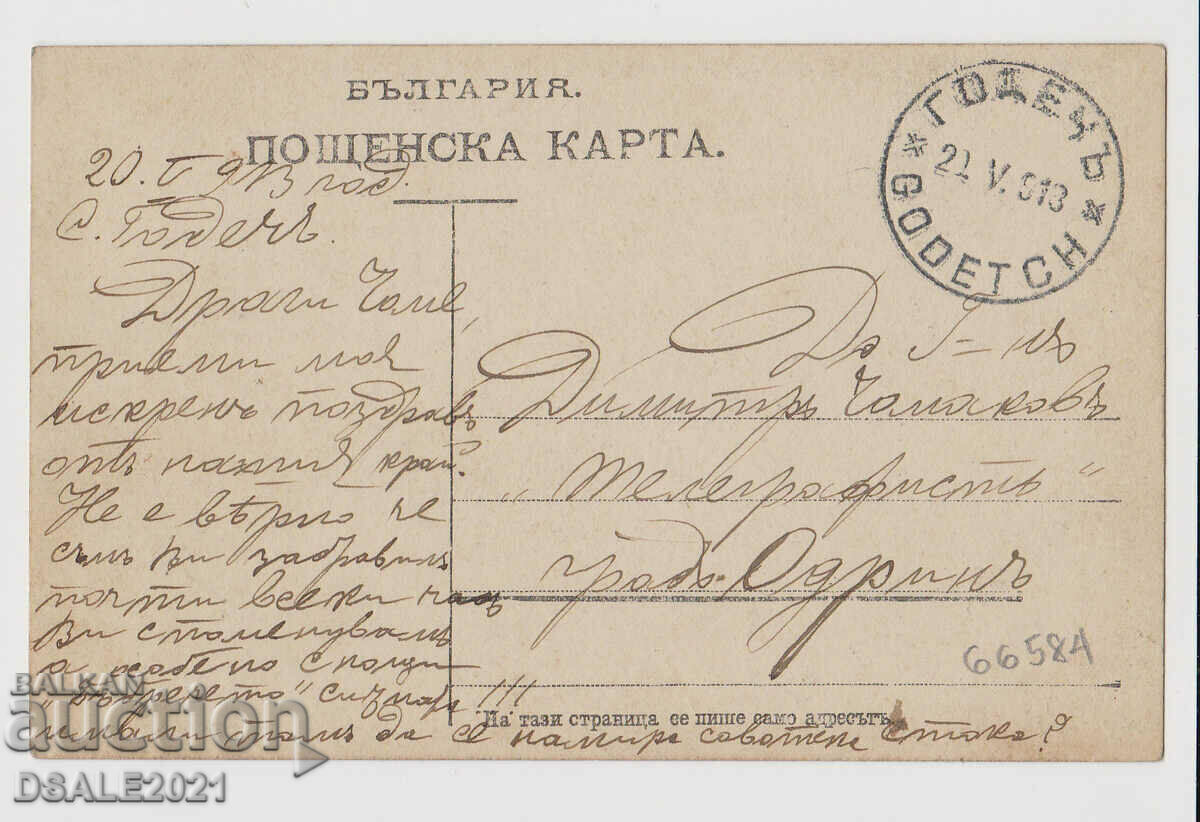 БЪЛГАРИЯ.
ПОЩЕНСКА КАРТА.
ГОДЕЧЪ
V. 913
GODETSCH
20. V 913 год.
С. Годечъ.
Драги Чаме,
приеми моя
искренъ поздравъ
отъ нашия край.
Не е вѣрно че
съмъ Ви забравилъ
почти всеки часъ
Ви споменувамъ
а особено
сичмара!!!
имали тамъ да се намира стока?
До Г-нъ
Димитръ Чамаковъ
„Телеграфистъ"
градъ Одринъ
66584
На тази страница се пише само адресътъ.
BALKAN
auction
DSALE2021